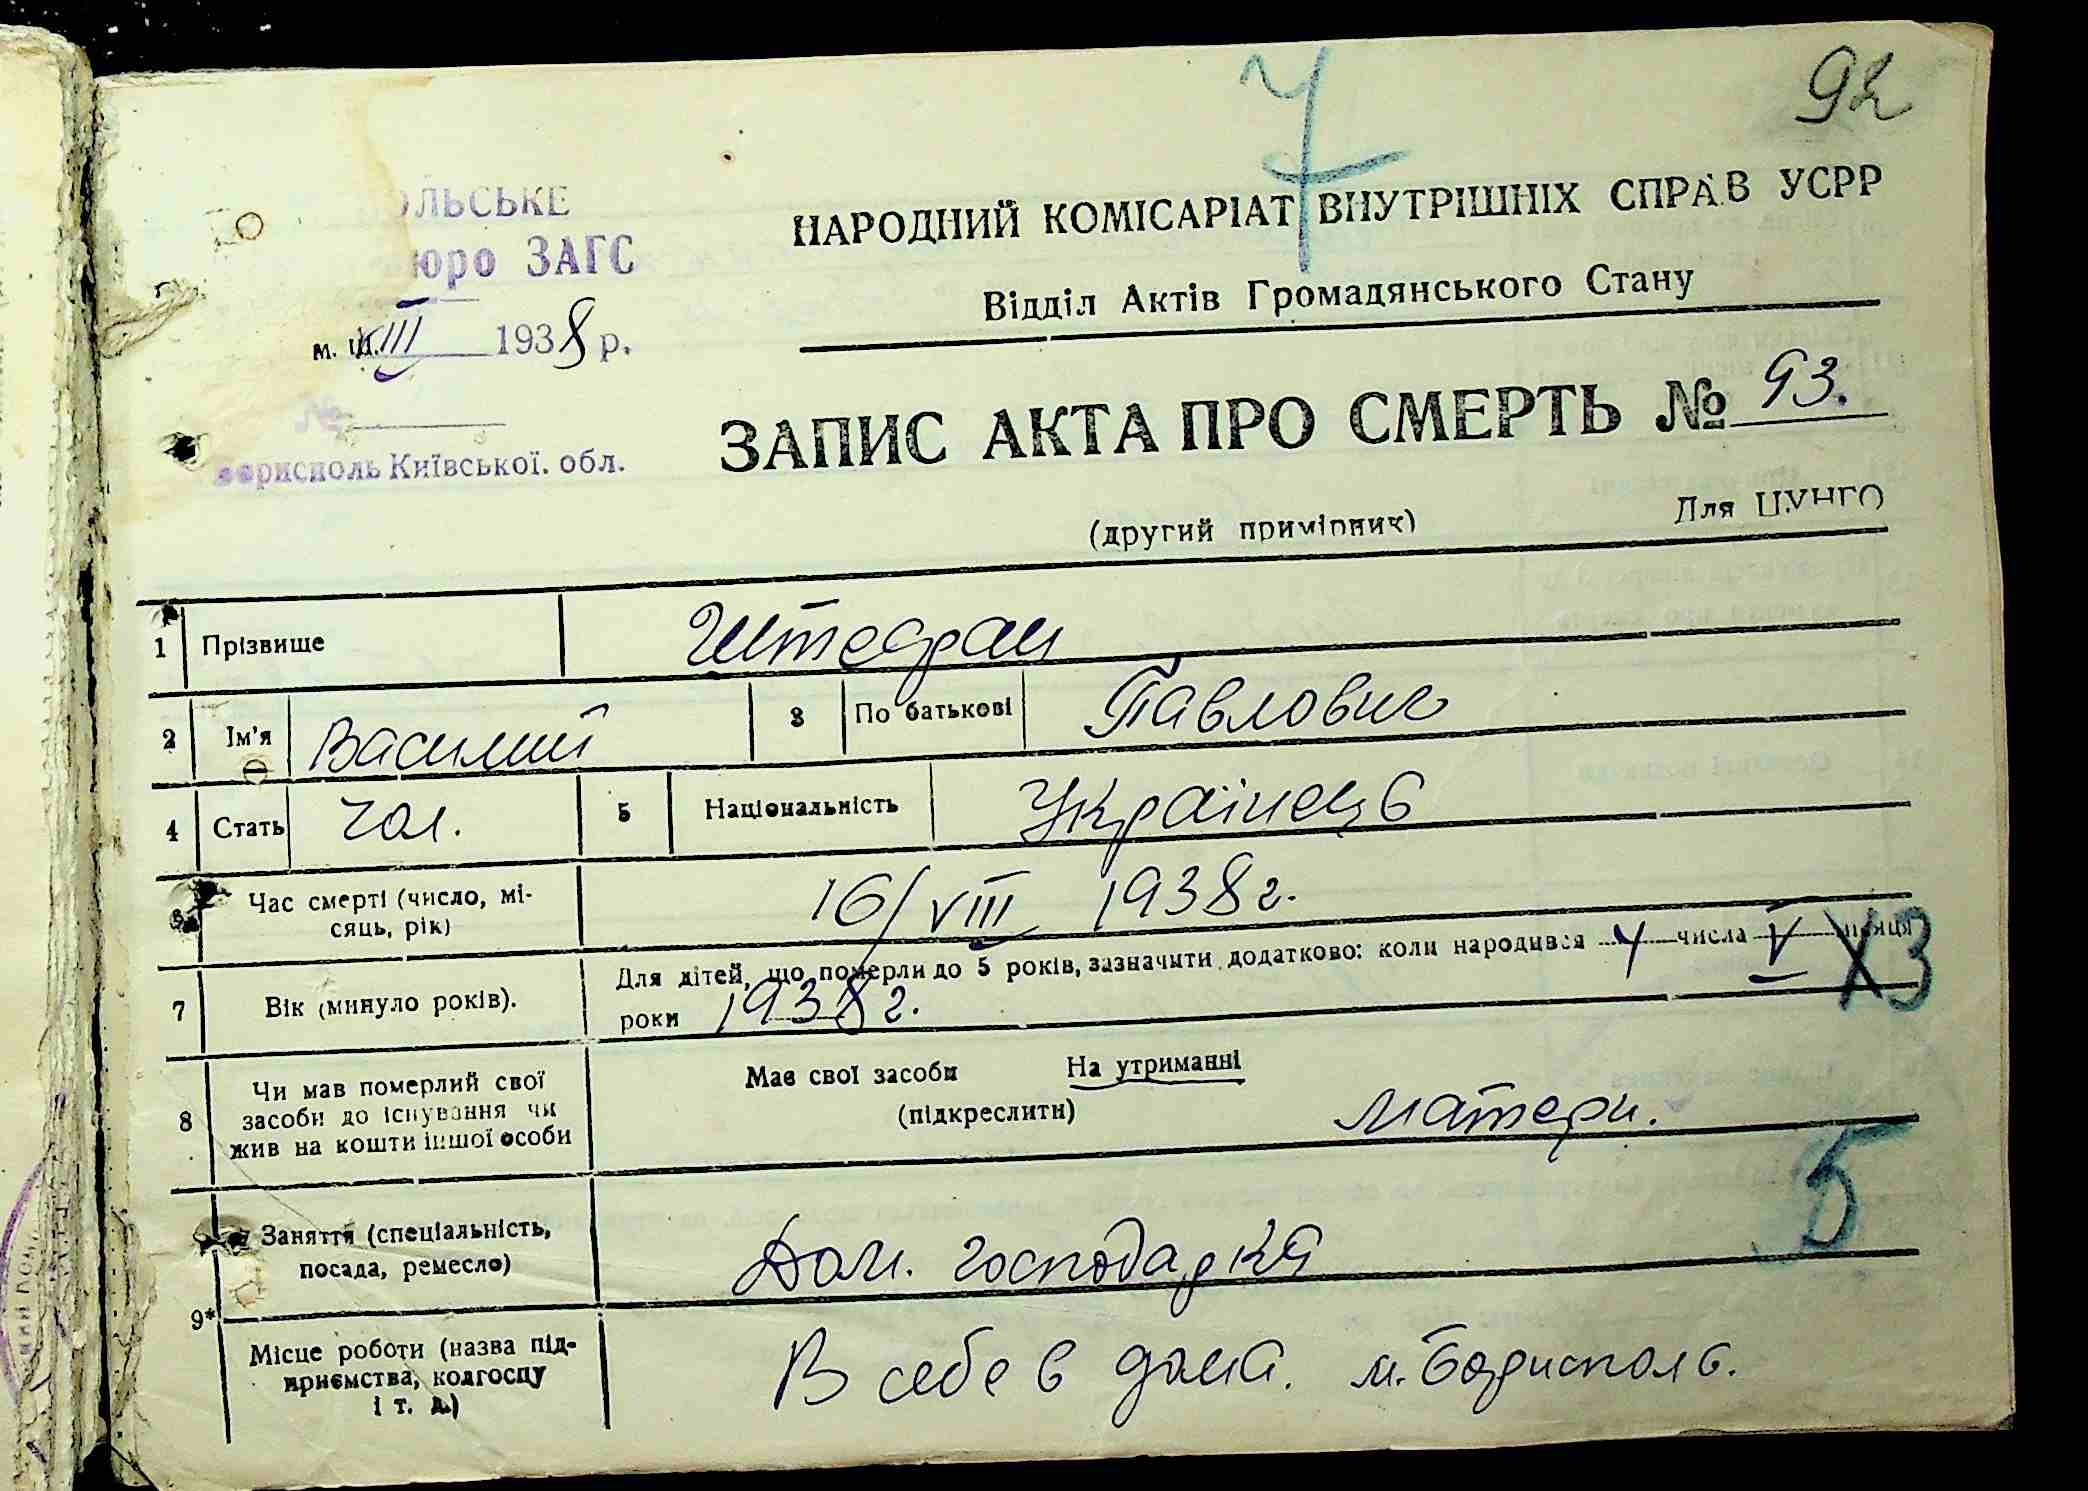 92
7
ОЛЬСЬКЕ
юро ЗАГС
VIII 1938 р.
№
Бориспіль Київської. обл.
НАРОДНИЙ КОМІСАРІАТ ВНУТРІШНІХ СПРАВ УСРР
Відділ Актів Громадянського Стану
ЗАПИС АКТА ПРО СМЕРТЬ № 93.
(другий примірник) Для ЦУНГО
1 Прізвище Штефан
2 Ім'я Василий 3 По батькові Павлович
4 Стать чол. 5 Національність Українець
6 Час смерті (число, місяць, рік) 16/VIII 1938 г.
7 Вік (минуло років). Для дітей, що померли до 5 років, зазначити додатково: коли народився 4 числа V місяця
роки 1938 г.
X3
8 Чи мав померлий свої
засоби до існування чи
жив на кошти іншої особи
Має свої засоби На утриманні
(підкреслити) матери.
5
9* Заняття (спеціальність,
посада, ремесло) Дом. господарка
Місце роботи (назва під-
приємства, колгоспу
і т. д.) В себе в дома. м. Бориспол